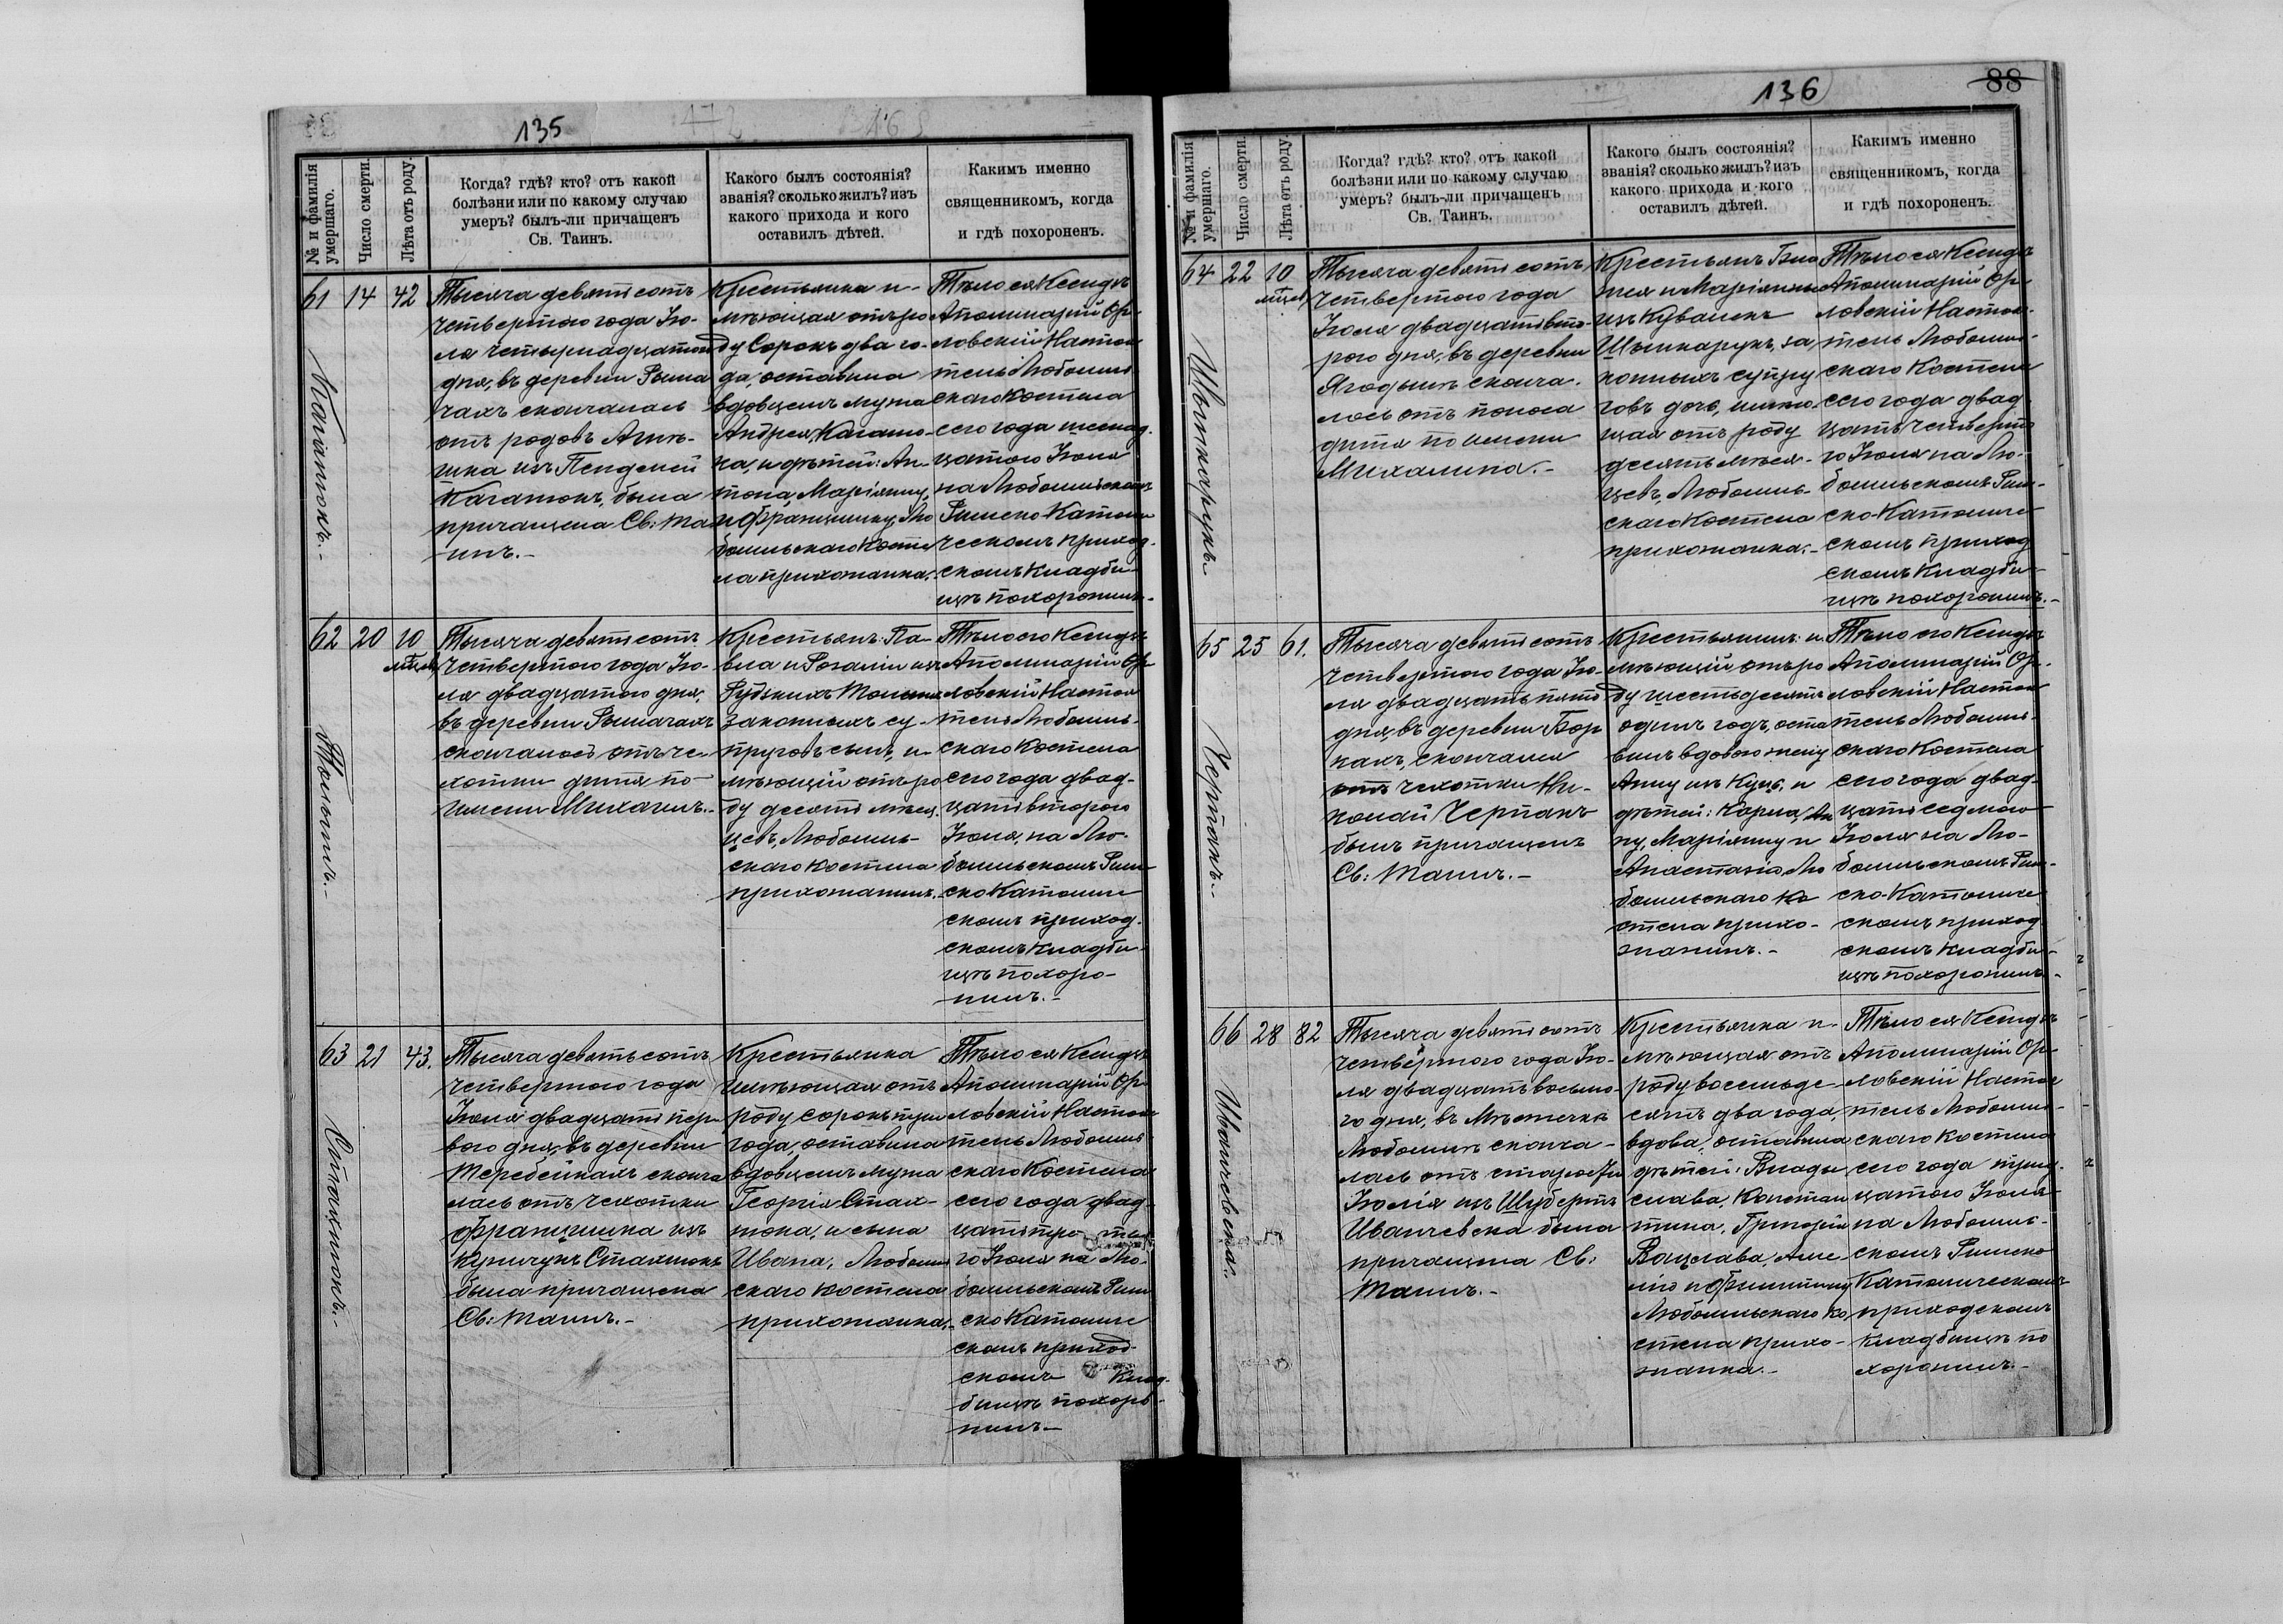 135
№ и фамилія умершаго.
Число смерти.
Лѣта отъ роду.
Когда? гдѣ? кто? отъ какой
болѣзни или по какому случаю
умеръ? былъ-ли причащенъ
Св. Таинъ.
Какого былъ состоянія?
званія? сколько жилъ? изъ
какого прихода и кого
оставилъ дѣтей.
Какимъ именно
священникомъ, когда
и гдѣ похороненъ.
61
14
42
Тысяча девятьсотъ
четвертого года Ію-
ля четырнадцатого
дня, въ деревни Рыма
чахъ скончалась
отъ родовъ Агнѣ-
шка изъ
была
причащена Св: Та
инъ.-
Крестьянка и-
мѣющая отъ ро
ду сорокъ два го-
да, оставила
вдовцемъ мужа
Андрея
ка, и дѣтей: Ан-
тона, Маріянну,
и Францишку, Лю
бомльскаго косте
ла прихожанка.-
Тѣло ея Ксендзъ
Аполинарій Ор-
ловскій Настоя
тель Любомль
скаго Костела
сего года шестнад-
цатого Іюля
на Любомльскомъ
Римско Католи
ческомъ приход-
скомъ кладби-
щѣ похоронилъ.-
62
20
10
мѣсяц
Тысяча девятьсотъ
четвертого года Ію-
ля двадцатого дня,
въ деревни Рымачахъ
скончалось отъ че-
хотки дитя по-
имени Михаилъ.-
Крестьянъ: Па-
вла и Розаліи изъ
законныхъ су-
пруговъ сынъ, и-
мѣющій отъ ро
ду десять мѣся-
цевъ, Любомль-
скаго костела
прихожанинъ.
Тѣло его Ксендзъ
Аполинарій Ор
ловскій Настоя
тель Любомль-
скаго Костела
сего года двад-
цать второго
Іюля, на Лю-
бомльскомъ Рим
ско Католиче
скомъ приход-
скомъ кладби-
щѣ похоро-
нилъ.-
63
21
43.
Стахнюкъ.-
Тысяча девятьсотъ
четвертого года
Іюля двадцать пер
вого дня, въ деревни
Теребейкахъ сконча
лась отъ чехотки
Францишка изъ
Стахнюкъ
была причащена
Св: Таинъ.-
Крестьянка
имѣющая отъ
роду сорокъ три
года, оставила
вдовцемъ мужа
Георгія Стах-
нюка, и сына
Ивана, Любомль
скаго костела
прихожанка.-
Тѣло ея Ксендзъ
Аполинарій Ор
ловскій Настоя
тель Любомль
скаго Костела
сего года двад-
цать тре тья
го Іюля на Лю-
бомльскомъ Рим
ско Католиче
скомъ приход-
скомъ Клад-
бищѣ похоро-
нилъ.-
136
88
№ и фамилія умершаго.
Число смерти.
Лѣта отъ роду.
Когда? гдѣ? кто? отъ какой
болѣзни или по какому случаю
умеръ? былъ-ли причащенъ
Св. Таинъ.
Какого былъ состоянія?
званія? сколько жилъ? изъ
какого прихода и кого
оставилъ дѣтей.
Какимъ именно
священникомъ, когда
и гдѣ похороненъ.
64
22
10
мѣсяц
Тысяча девятьсотъ
четвертого года
Іюля двадцать вто-
рого дня, въ деревни
Ягодынѣ сконча-
лось отъ поноса
дитя по имени
Михалина.-
Крестьянъ
и Маріянны
изъ
за
конныхъ супру
говъ дочь, имѣю-
щая отъ роду
десять мѣся-
цевъ, Любомль-
скаго Костела
прихожанка.-
Тѣло ея Ксендзъ
Аполинарій Ор-
ловскій Настоя-
тель Любомль-
скаго Костела
сего года двад-
цать четверто
го Іюля на Лю-
бомльскомъ Рим-
ско-Католиче
скомъ приход
скомъ Кладби-
щѣ похоронилъ.-
65
25
61.
Черпакъ.-
Тысяча девятьсотъ
четвертого года Ію-
ля двадцать пятого
дня, въ деревни Бор
кахъ, скончался
отъ чехотки Ни-
колай Черпакъ
былъ причащенъ
Св: Таинъ.-
Крестьянинъ: и-
мѣющій отъ ро
ду шестьдесятъ
одинъ годъ, оста
вилъ вдовою жену
Анну изъ Куць, и
дѣтей: Карла, Ан
ну, Маріянну и
Анастазію, Лю
бомльскаго Ко
стела прихо-
жанинъ.-
Тѣло его Ксендзъ
Аполинарій Ор-
ловскій Настоя
тель Любомль-
скаго Костела
сего года двад-
цать седмого
Іюля на Лю-
бомльскомъ Рим-
ско-Католиче
скомъ приход
скомъ кладби-
щѣ похоронилъ.-
66
28
82
Иваневска.-
Тысяча девятьсотъ
четвертого года Ію-
ля двадцать восьмо-
го дня, въ Мѣстечкѣ
Любомлѣ сконча-
лась отъ старости
Юлія изъ Шубертъ
Иваневска была
причащена Св:
Таинъ.-
Крестьянка и-
мѣющая отъ
роду восемьде-
сятъ два года,
вдова, оставила
дѣтей: Влады
слава, Констан
тина, Григорія
Вацлава, Аме-
лію и
Любомльскаго Ко
стела прихо-
жанка.-
Тѣло ея Ксендзъ
Аполинарій Ор-
ловскій Настоя
тель Любомль-
скаго костела
сего года трид-
цатого Іюля
на Любомль-
скомъ Римско
Католическомъ
приходскомъ
кладбищѣ по
хоронилъ.-